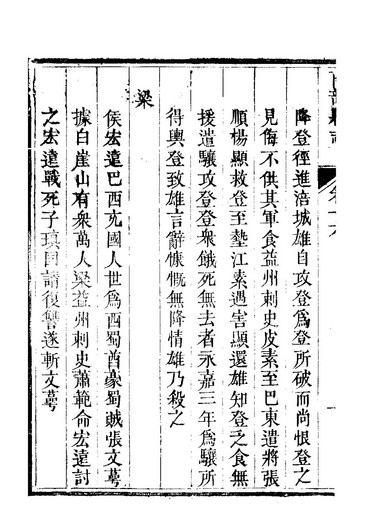 降登徑進涪城雄自攻登爲登所破而尚恨登之
見侮不供其軍食益州刺史皮素至巴東遣將張
順楊顯救登至墊江素遇害顯還雄知登乏食無
援遣驤攻登登衆餓死無去者永嘉三年爲驤所
得輿登致雄言辭慷慨無降情雄乃殺之
梁
侯宏遠巴西充國人世爲西蜀酋豪蜀賊張文萼
據白崖山有衆萬人梁益州刺史蕭範命宏遠討
之宏遠戰死子瑱固請復讐遂斬文萼